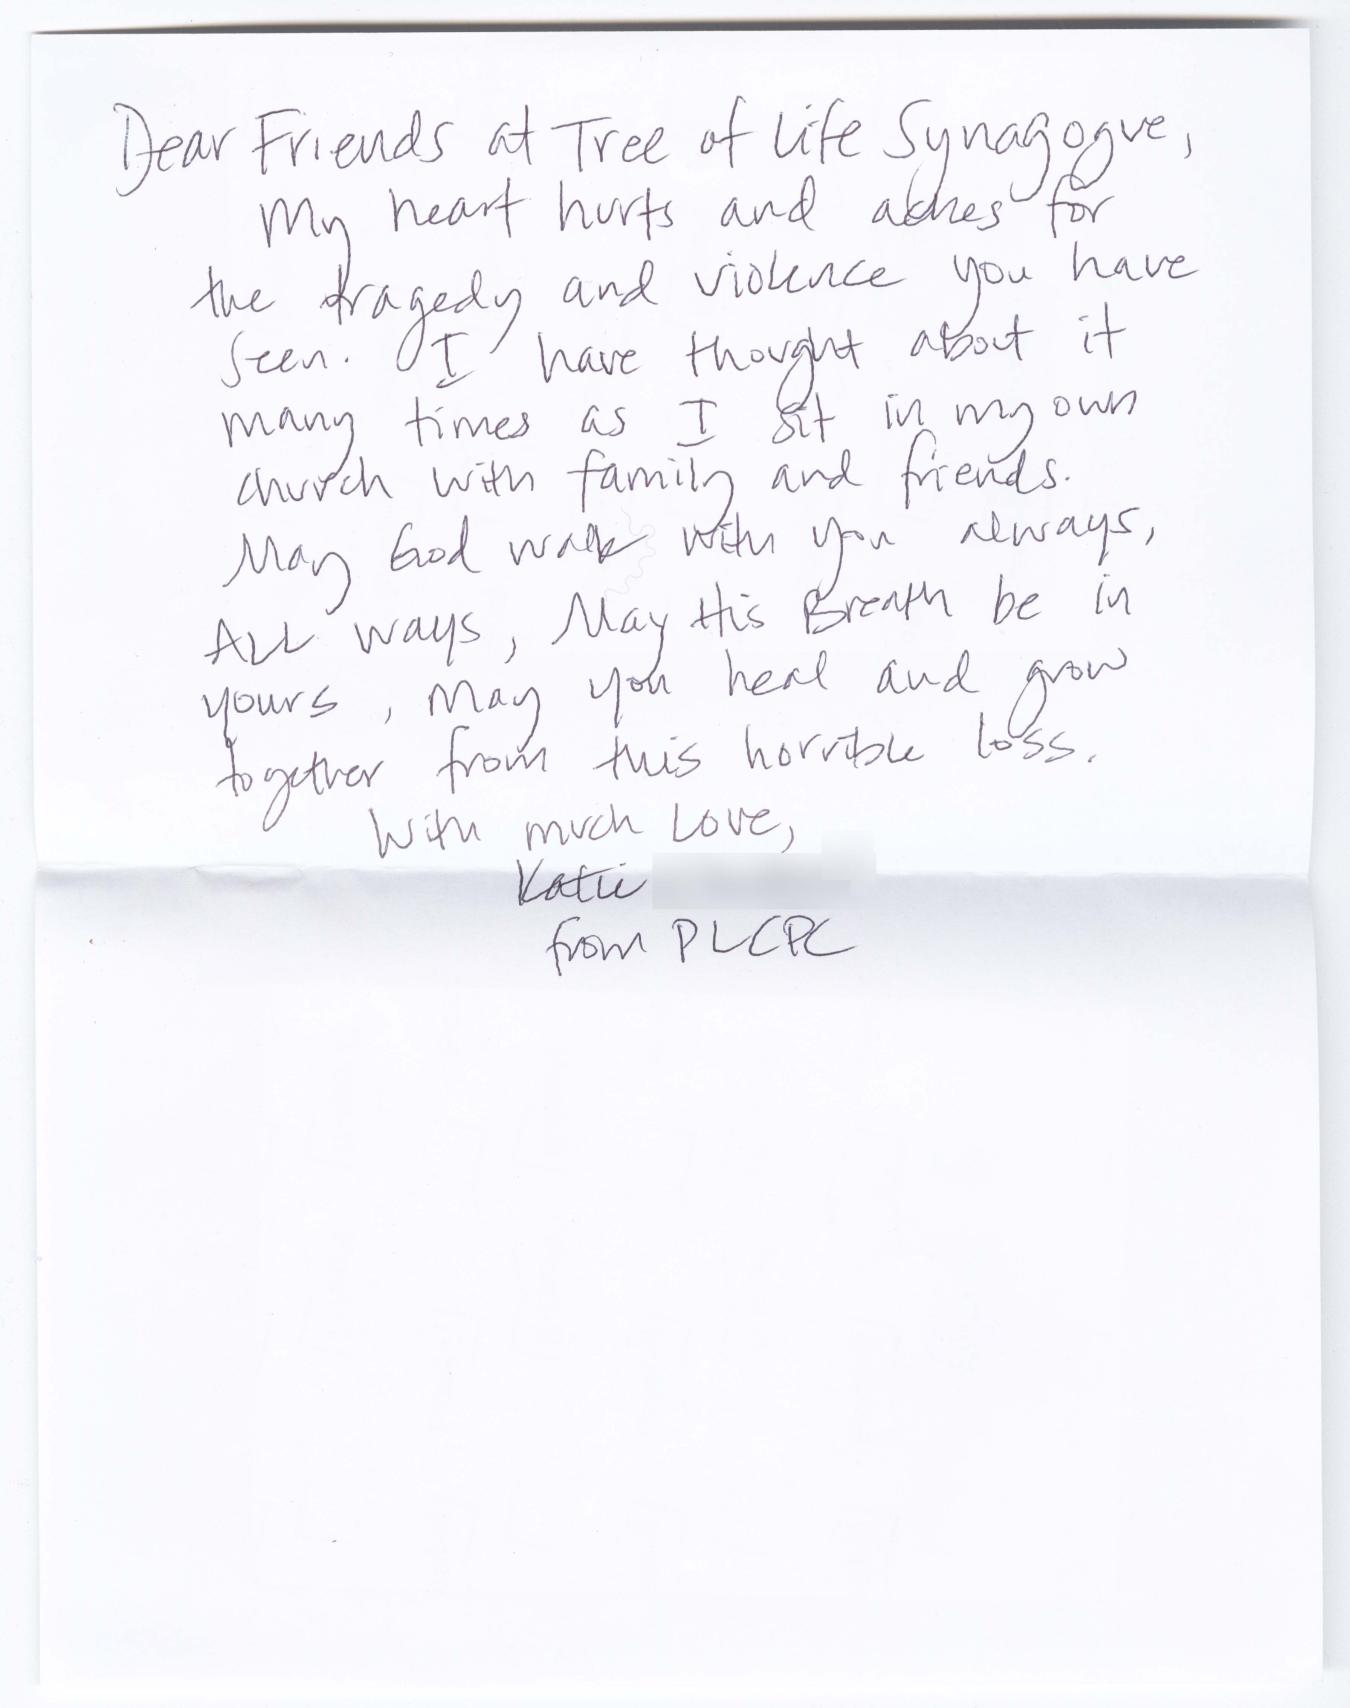 Dear Friends at Tree of Life Synagogue,
My heart hurts and aches for
the tragedy and violence you have
seen. I have thought about it
many times as I sit in my own
church with family and friends.
May God walk with you always,
ALL ways, May His Breath be in
yours, May you heal and grow
together from this horrible loss.
With much Love,
Katie
from PLCPC